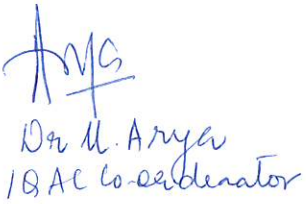 Arya
Dr M. Arya
IQAC Co-ordenator